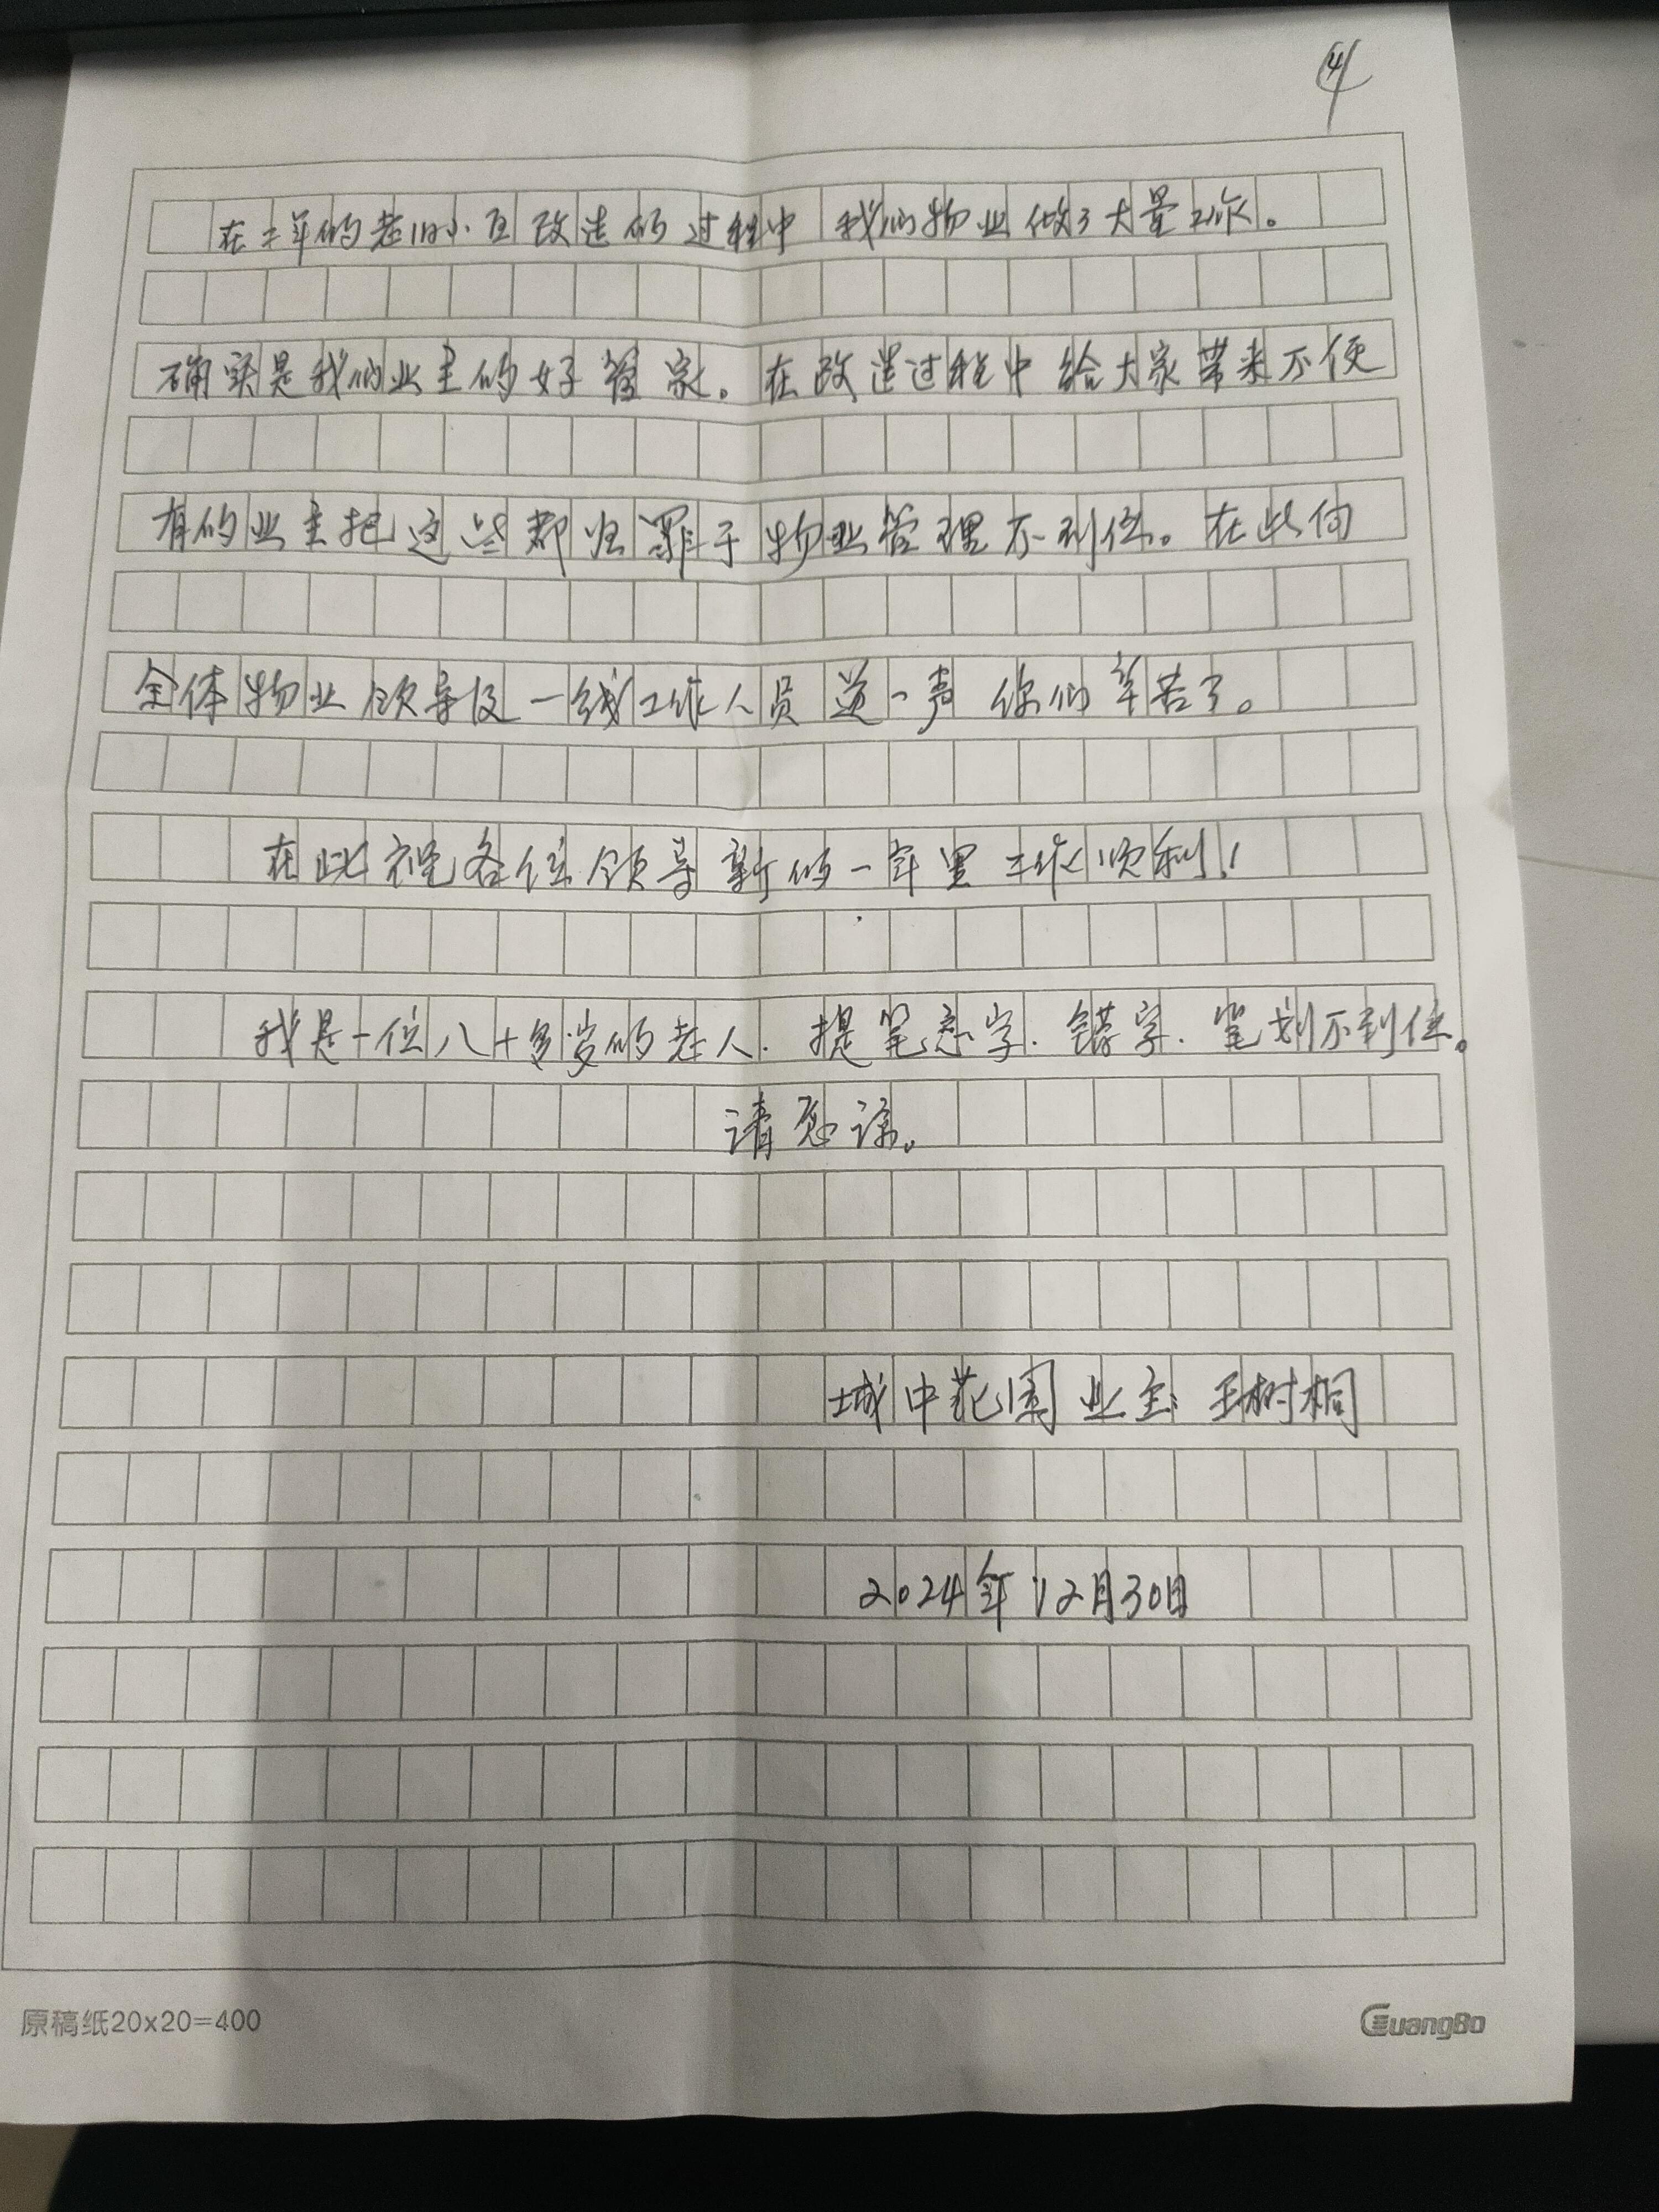 4
在二年的老旧小区改造的过程中 我们物业做了大量工作。
确实是我们业主的好管家。在改造过程中给大家带来不便
有的业主把这些都归罪于物业管理不到位。在此向
全体物业领导及一线工作人员道一声 你们辛苦了。
在此祝各位领导新的一年里工作顺利！
我是一位八十多岁的老人.提笔忘字.错字.笔划不到位。
请原谅。
城中花园业主：王树桐
2024年12月30日
原稿纸20x20=400
GuangBo